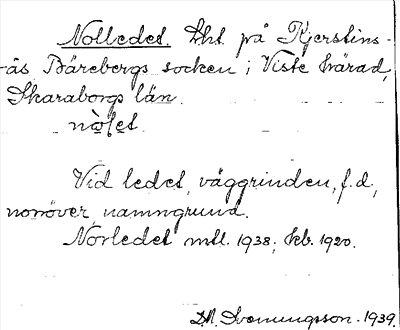 Nolledet. Lht på Kjerstins-
-ås Bärebergs socken; Viste härad,
Skaraborgs län.
Vid ledet, väggrinden, f.d.,
norröver, namngrund.
Norledet mtl. 1938; kb. 1920.
D.A. Svenungsson. 1939.